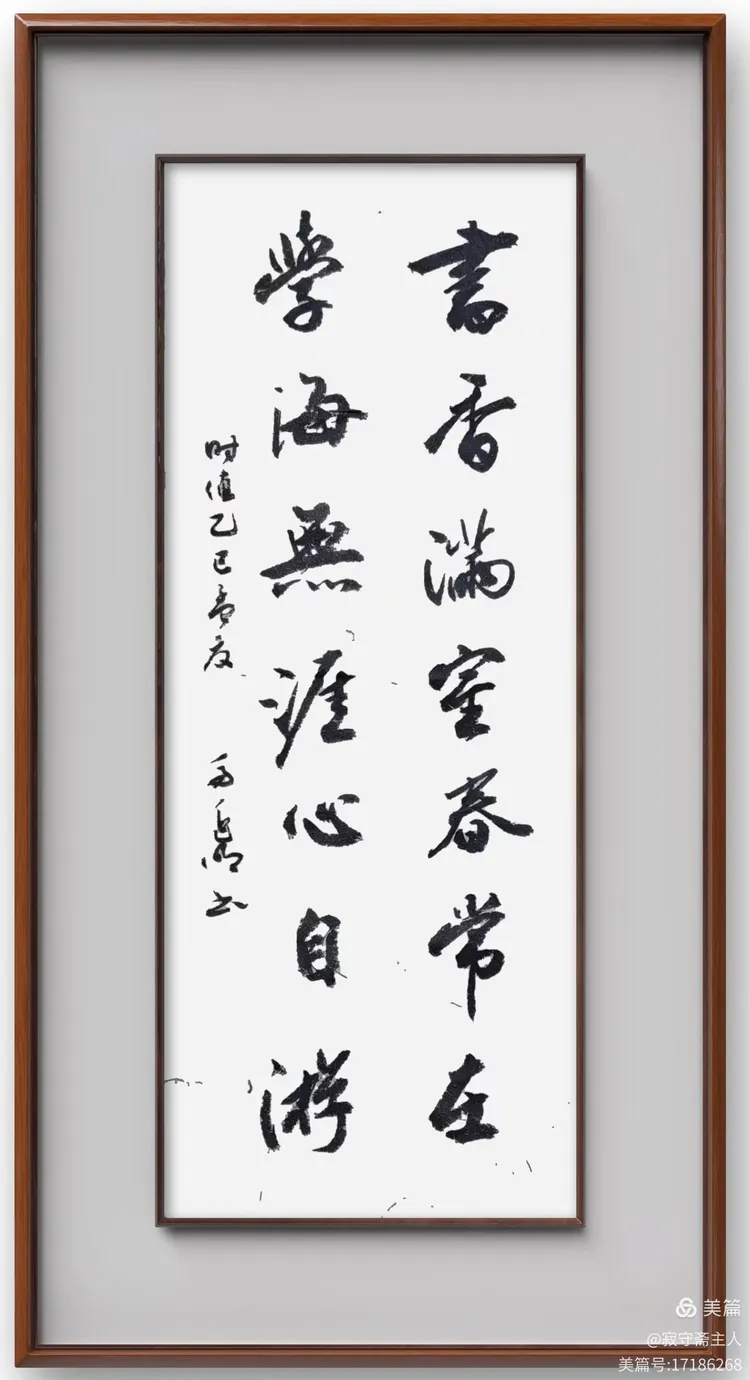 書香滿室春常在
學海無涯心自游
时值乙巳孟夏
书
美篇
@寂守斋主人
美篇号:17186268